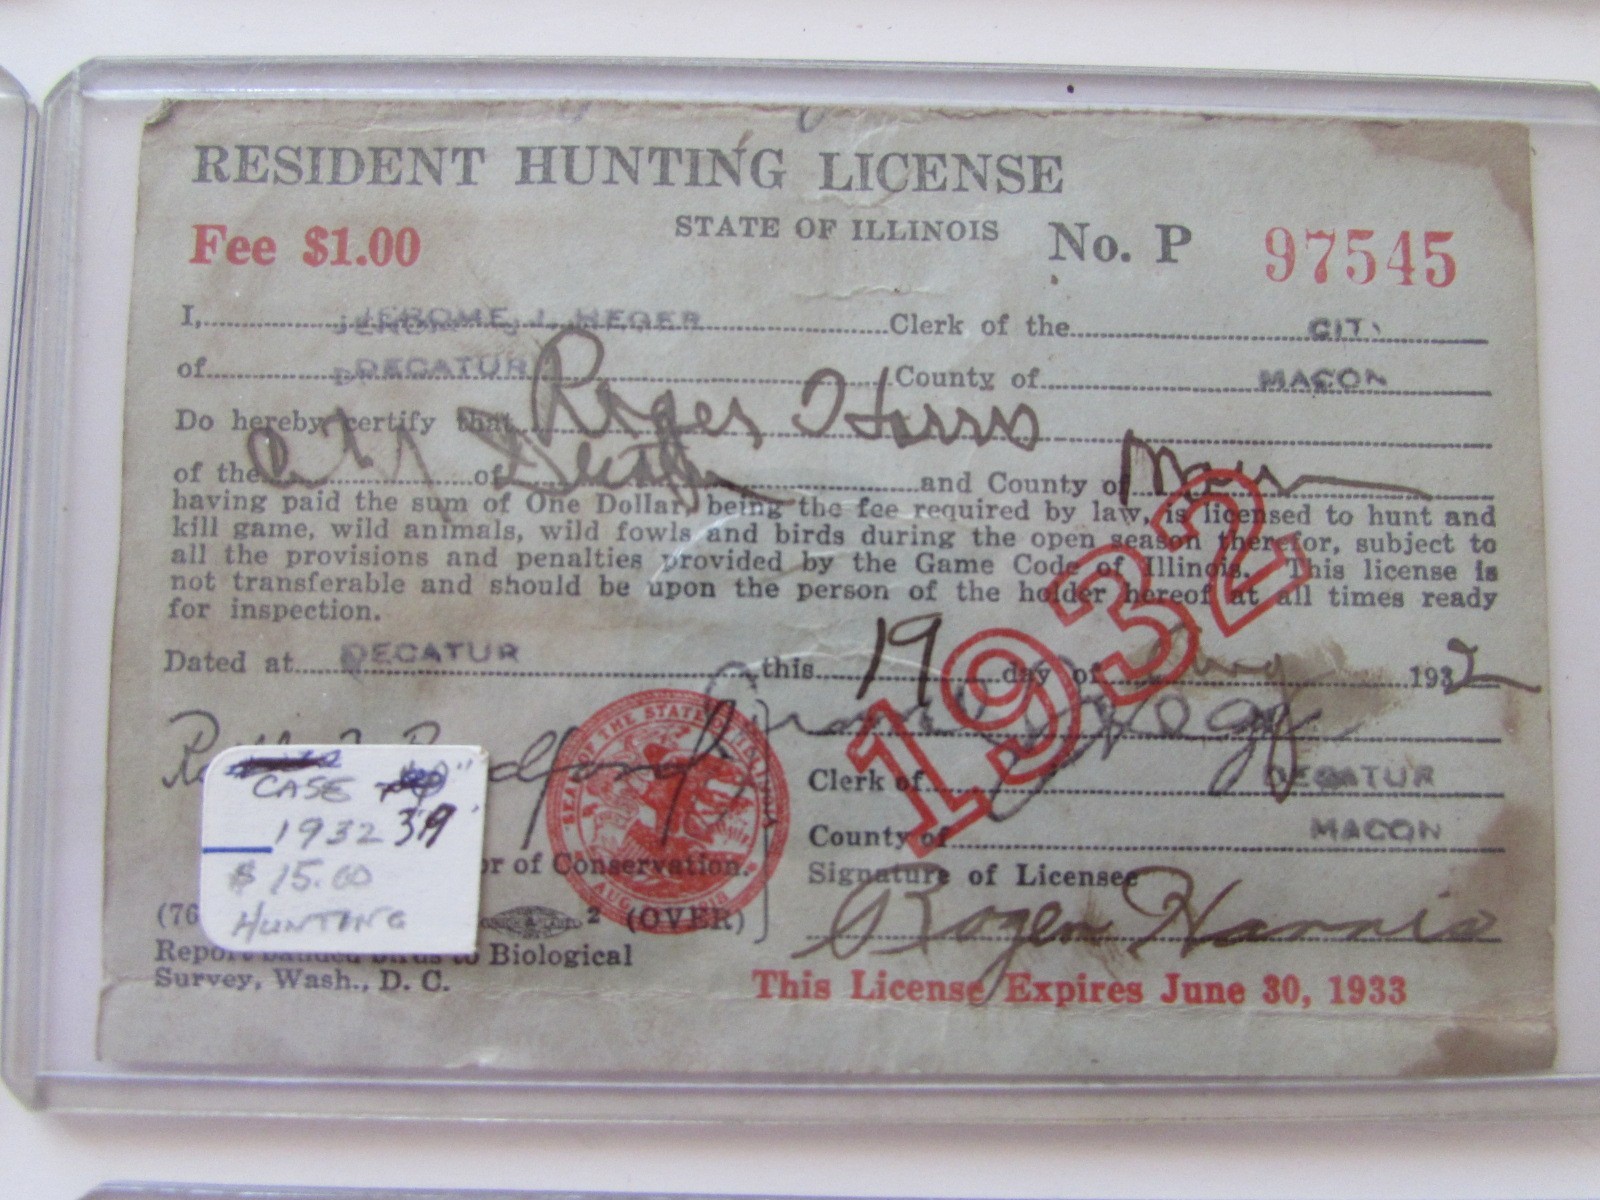 RESIDENT HUNTING LICENSE
STATE OF ILLINOIS
Fee $1.00
No. P 97545
I, JEROME J. HEGER Clerk of the CITY
of DECATUR County of MACON
Do hereby certify that Roger Harris
of the City of Decatur and County of Macon
having paid the sum of One Dollar, being the fee required by law, is licensed to hunt and
kill game, wild animals, wild fowls and birds during the open season therefor, subject to
all the provisions and penalties provided by the Game Code of Illinois. This license is
not transferable and should be upon the person of the holder hereof at all times ready
for inspection.
1932
Dated at DECATUR this 19 day of Aug 1932
SEAL OF THE STATE OF ILLINOIS
AUG. 1818
Clerk of DECATUR
County of MACON
of Conservation.
Signature of Licensee
Roger Harris
(76
2 (OVER)
Report banded birds to Biological
Survey, Wash., D. C.
This License Expires June 30, 1933
CASE
1932 39
$15.00
HUNTING